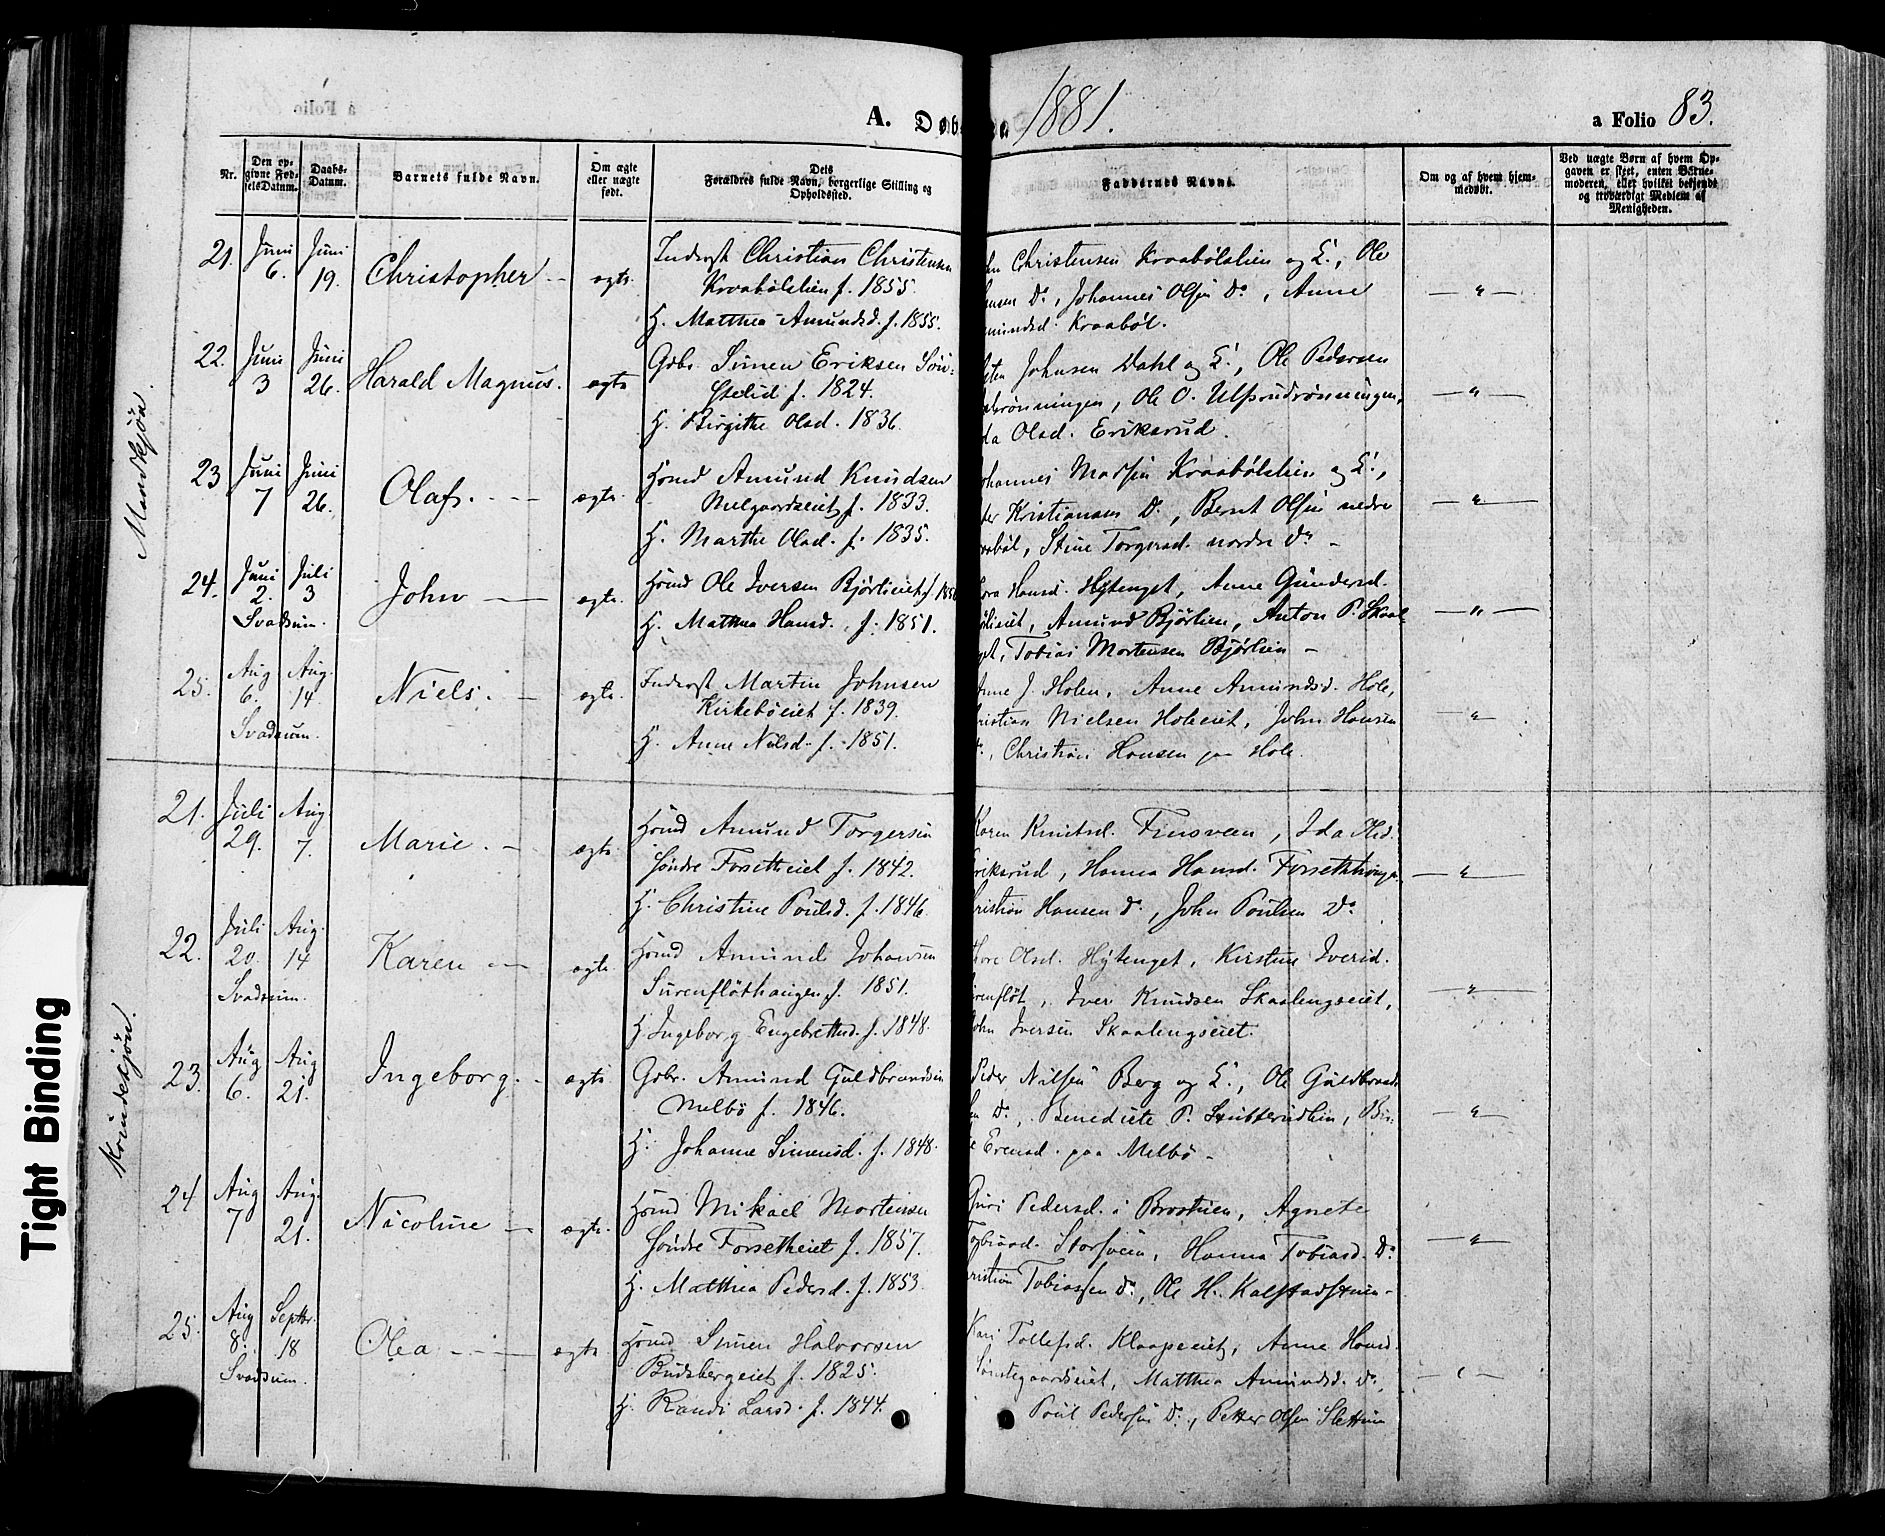 A. Døb
1881.
a Folio 83.
Nr.
Den opgivne FødselsDatum.
Daabs-Datum.
Barnets fulde Navn.
Om ægte eller uægte født.
Dets Forældres fulde Navn, borgerlige Stilling og Opholdssted.
Faddernes Navne.
Om og af hvem hjemmedøbt.
Ved uægte Børn af hvem Opgaven er skeet, enten Barnemoderen, eller hvilket bekjendt og troværdigt Medlem af Menigheden.
Mandkjøn.
21. Juni 6. Juni 19. Christopher – ægte
Inderst Christian Christensen
Kraabølslien f. 1855.
H. Matthea Amundsd. f. 1855.
Christensen Kraabølslien og K., Ole
Do, Johannes Olsen Do, Anne
Kraabøl.
22. Juni 3 Juni 26. Harald Magnus. ægte
Gdbr. Simen Eriksen
f. 1824.
H. Birgithe Olsd. 1836.
Johnsen Dahl og K., Ole Pedersen
Ole O. Ulsrudrønningen,
Olsd. Eriksrud.
23 Juni 7 Juni 26. Olaf. – ægte.
Hmd Amund Knudsen
Melgaardseiet f. 1833.
H. Marthe Olsd. f. 1835.
Kraabølslien og K.,
Kristiansen Do, Bernt Olsen nedre
Stine Torgersd. nordre Do –
24. Juni 2. Juli 3 John – ægte.
Svadsum.
Hmd Ole Iversen Bjørlieiet f.
H. Mathea Hansd. f. 1851.
Hansd. Hytenget, Anne Gundersd.
Amund Bjørlien, Anton P.
Tobias Mortensen Bjørlien –
25. Aug 6. Aug. 14. Niels. – ægte.
Svadsum.
Inderst Martin Johnsen
Kirkebøeiet f. 1839.
H. Anne Nilsd. f. 1851.
Anne J. Holen, Anne Amundsd. Hole,
Nielsen Holeeiet, John Hansen
Christian Hansen paa Hole.
Kvindekjøn.
21. Juli 29. Aug 7. Marie. – ægte.
Hmd Amund Torgersen
søndre Forsetheiet f. 1842.
H. Christine Poulsd. f. 1846.
Karen Knutsd. Finsveen, Ida
Hanna Hansd.
Hansen Do, John Poulsen Do.
22. Juli 20. Aug. 14 Karen – ægte.
Svadsum.
Hmd Amund Johansen
Surenflöthaugen f. 1851.
H. Ingeborg Engebretsd. f. 1848.
Olsd. Hytenget, Kirstine Iversd.
Iver Knudsen Skaalengseiet,
Iversen Skaalengseiet.
23. Aug 6. Aug 21. Ingeborg. – ægte
Gdbr. Amund Guldbrandsen
Melbö f. 1846.
H. Johanne Simensd. f. 1848.
Peder Nilsen Berg og K., Ole
Do, Benedicte P.
paa Melbö –
24 Aug 7 Aug. 21. Nicoline – ægte.
Hmd Mikael Mortensen
søndre Forsetheiet f. 1857.
H. Matthea Pedersd. f. 1853
Guri Pedersd. i Agnete
Storsveen, Hanna Tobiasd. Do
Tobiassen Do, Ole H. Kalstadstuen –
25. Aug 8. Septbr. 18 Olea – ægte
Svadsum.
Hmd Simen Halvorsen
Budsbergeiet f. 1825.
H. Randi Larsd. f. 1844.
Kari Tollefsd. Klaapeeiet, Anne Hansd.
Matthea Amundsd. Do,
Poul Pedersen Do, Petter Olsen
Tight Binding